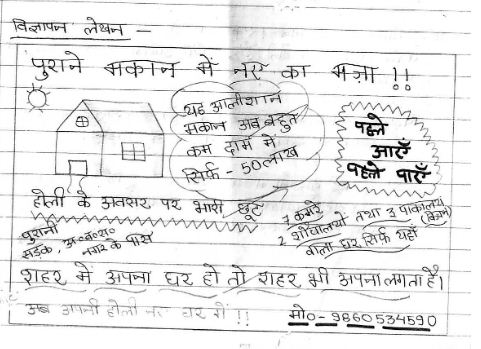 विज्ञापन लेखन -
पुराने मकान में नए का मज़ा !!
यह आलीशान
मकान अब बहुत
कम दाम में
सिर्फ - 50 लाख
पहले
आएँ
पहले पाएँ
होली के अवसर पर भारी छूट
पुरानी
सड़क, अ०ब०स०
नगर के पास
7 कमरे
2 शौचालयों तथा 3 पाकालय
(किचन)
वाला घर सिर्फ यहाँ
शहर में अपना घर हो तो शहर भी अपना लगता है।
अब अपनी होली नए घर में !!
मो०- 9860534590